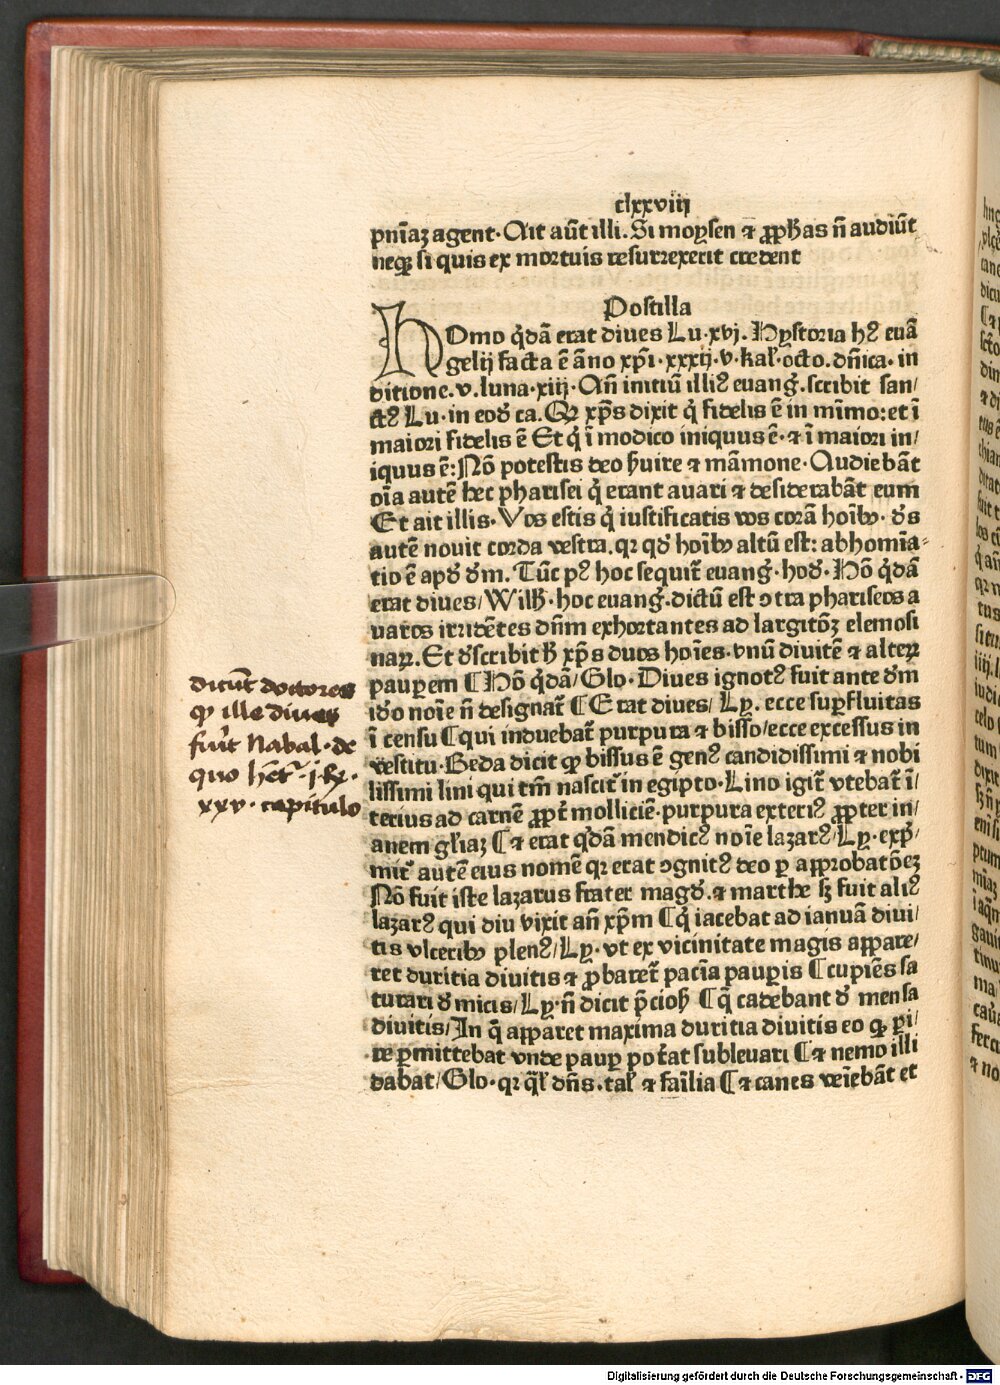 clxxviij
pn̄iaz agent· Ait aūt illi. Si moysen ⁊ ꝓpħas n̄ audiūt
neqꝫ si quis ex mortuis resurrexerit credent
Postilla
HOmo q̄dā erat diues Lu·xvj· Hystoria hꝰ euā
gelij facta ē āno xp̄i·xxxij·v·kal̓·octo. dn̄ica· in
ditione.v.luna·xiij· An̄ initiū illiꝰ euanǵ.scribit san/
ctꝰ Lu·in eod̓ ca. Qꝛ xp̄s dixit q̇ fidelis ē in mīmo: et ī
maiori fidelis ē Et q̇ ī modico iniquus ē·⁊ ī maiori in/
iquus ē: Nō potestis deo ẜuire ⁊ māmone· Audiebāt
oīa autē hec pharisei q̇ erant auari ⁊ desiderabāt eum
Et ait illis· Vos estis q̇ iustificatis vos corā hoībꝰ· d̓s
autē nouit corda vestra. qꝛ qd̓ hoībꝰ altū est: abhomīa⸗
tio ē apd̓ d̓m. Tūc pꝰ hoc sequit̄ euanǵ·hod̓· Hō q̄dā
erat diues/ Wilħ·hoc euanǵ.dictū est ɔtra phariseos a
uaros irridētes dn̄m exhortantes ad largitōꝫ elemosi
naꝝ. Et d̓scribit ħ xp̄s duos hoīes·vnū diuitē ⁊ alteꝝ
pauꝑem ¶ Hō q̄dā/ Glo· Diues ignotꝰ fuit ante d̓m
id̓o noīe n̄ designat̄ ¶ Erat diues/ Ly. ecce suꝑfluitas
ī censu ¶ qui induebat̄ purpura ⁊ bisso/ ecce excessus in
vestitu· Beda dicit ꝙ bissus ē genꝰ candidissimi ⁊ nobi
lissimi lini qui tm̄ nascit̄ in egipto· Lino igit̄ vtebat̄ ī/
terius ad carnē ꝓpt̄ molliciē·purpura exteriꝰ ꝓpter in/
anem gl̓iaz ¶ ⁊ erat q̇dā mendicꝰ noīe lazarꝰ/ Ly·exp̄/
mit̄ autē eius nomē qꝛ erat ɔgnitꝰ deo ꝑ aꝓprobatōeꝫ
Nō fuit iste lazarus frater magd̓.⁊ marthe sꝫ fuit aliꝰ
lazarꝰ qui diu vixit an̄ xp̄m ¶ q̇ iacebat ad ianuā diui/
tis vlceribꝰ plenꝰ/ Ly·vt ex vicinitate magis appare/
ret duritia diuitis ⁊ ꝓbaret̄ pacīa pauꝑis ¶ cupiēs sa
turari d̓ micis/ Ly·n̄ dicit p̄ciosꝭ ¶ q̄ cadebant d̓ mensa
diuitis/ In q̄ apparet maxima duritia diuitis eo ꝙ ꝑi/
re ꝑmittebat vnde pauꝑ pot̓at subleuari ¶ ⁊ nemo illi
dabat/ Glo·qꝛ q̄l̓ dn̄s.tal̓ ⁊ faīlia ¶ ⁊ canes veīebāt et
dicūt doctores
ꝙ ille diues
fuit Nabal·de
quo het̄·j·R·
xxv·capitulo
Digitalisierung gefördert durch die Deutsche Forschungsgemeinschaft - DFG